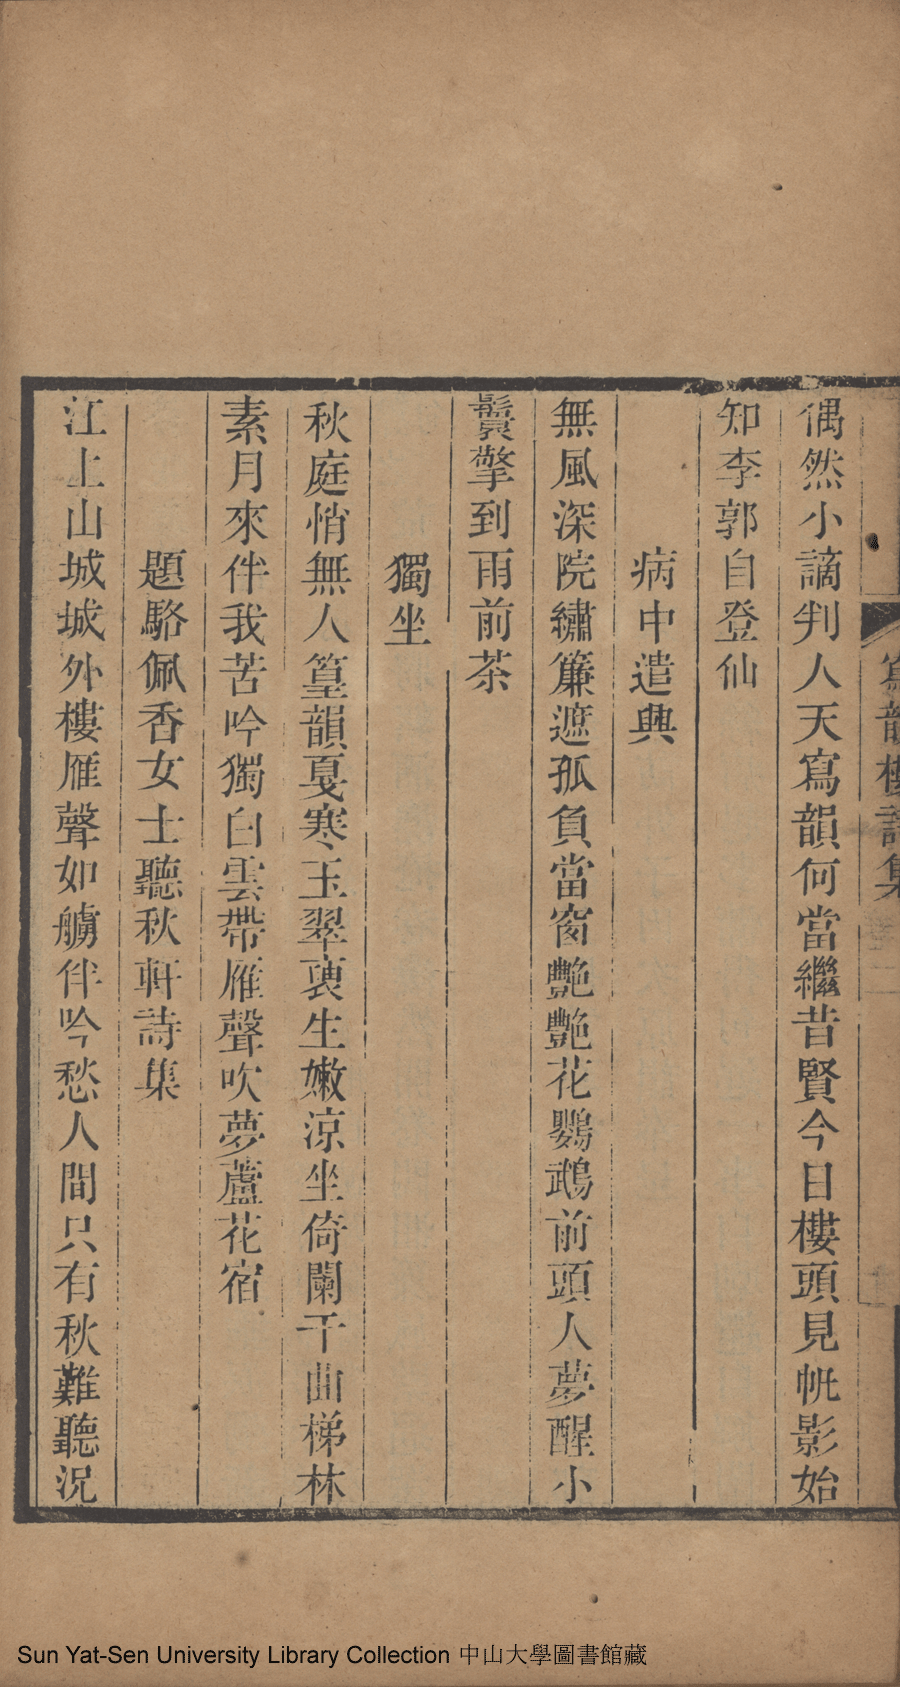 寫韻樓詩集
偶然小謫判人天寫韻何當繼昔賢今日樓頭見帆影始
知李郭自登仙
病中遣興
無風深院繡簾遮孤負當窗艷艷花鸚鵡前頭人夢醒小
鬟擎到雨前茶
獨坐
秋庭悄無人篁韻戛寒玉翠裛生嫩涼坐倚闌干曲梯林
素月來伴我苦吟獨白雲帶雁聲吹夢蘆花宿
題駱佩香女士聽秋軒詩集
江上山城城外樓雁聲如艣伴吟愁人間只有秋難聽況
Sun Yat-Sen University Library Collection 中山大學圖書館藏